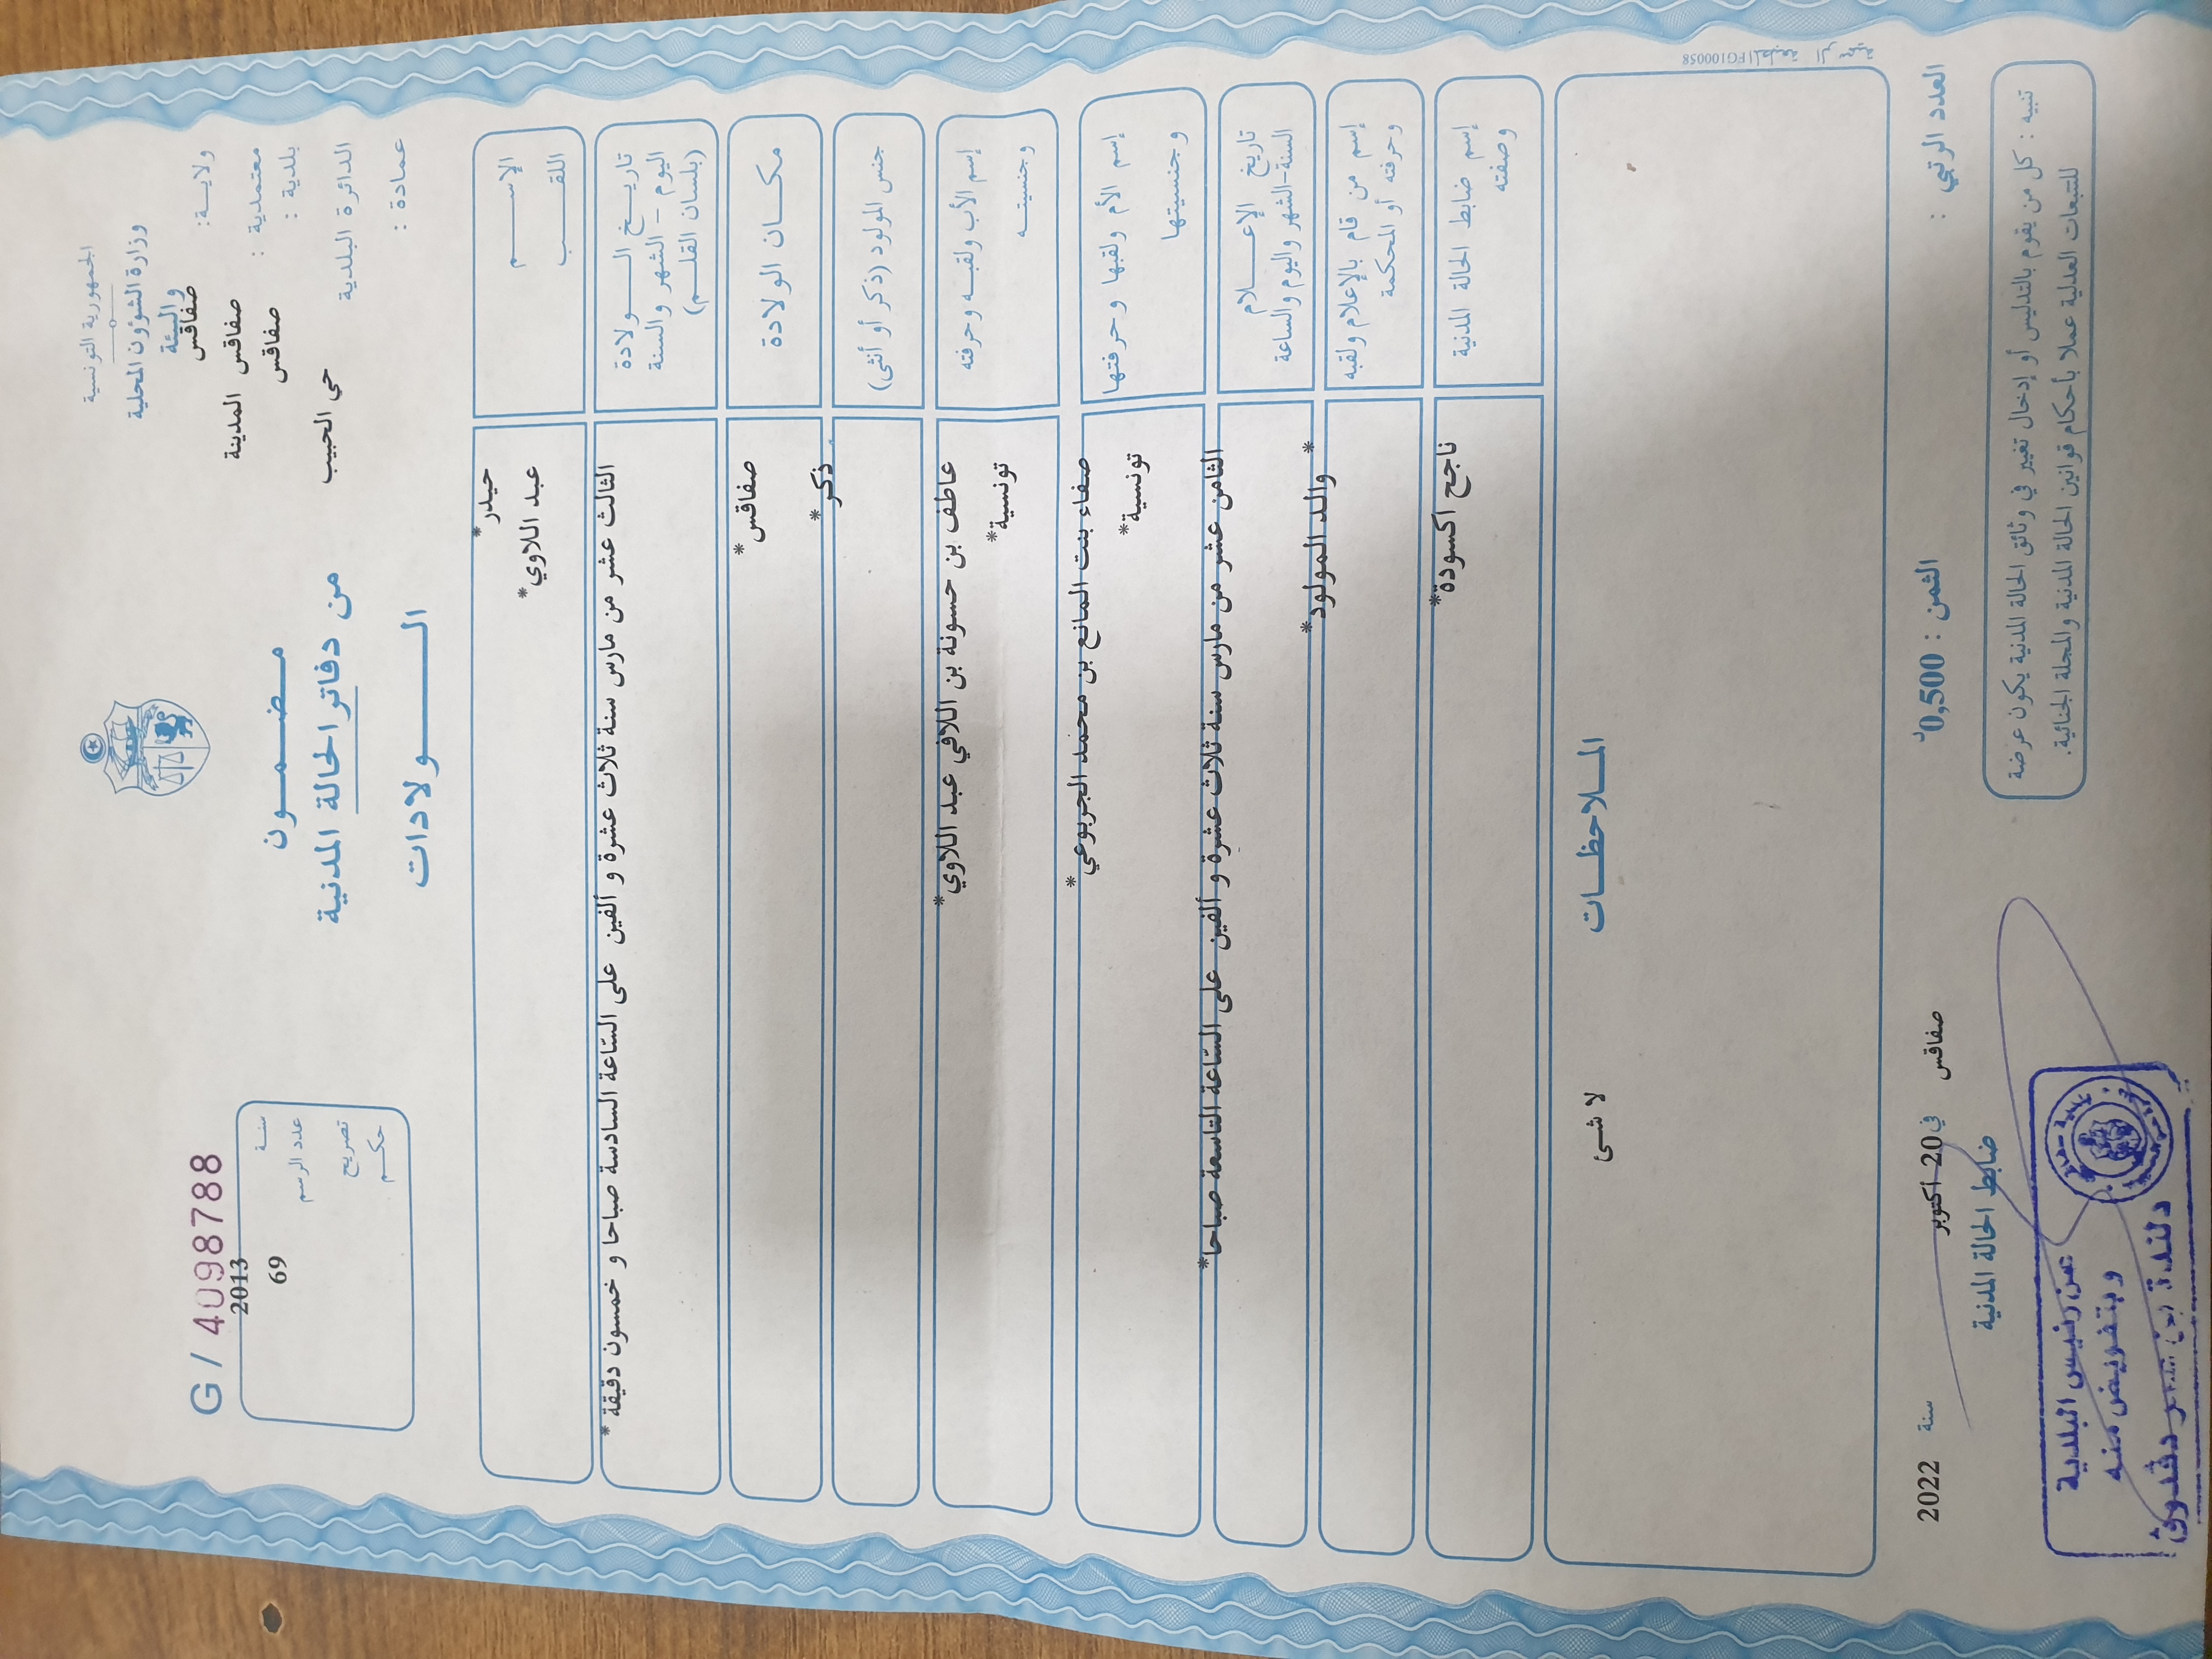 الجمهورية التونسية
وزارة الشؤون المحلية
والبيئة
ولايــة: صفاقس
معتمدية : صفاقس المدينة
بلدية : صفاقس
الدائرة البلدية حي الحبيب
عمادة :
مـضـمـون
من دفاتر الحالة المدنية
الـولادات
G / 4098788
سنـة 2013
عدد الرسم 69
تصريح
حكـم
الإسـم حيدر*
اللقـب عبد اللاوي*
تاريـخ الـولادة الثالث عشر من مارس سنة ثلاث عشرة و ألفين على السّاعة السادسة صباحا و خمسون دقيقة *
اليوم - الشهر والسنة
(بلسان القلـم)
مكـان الولادة صفاقس*
جنس المولود (ذكر أو أنثى) ذكر*
إسم الأب ولقبـه وحرفته عاطف بن حسونة بن اللافي عبد اللاوي*
وجنسيتـه تونسية*
إسم الأم ولقبها وحرفتها صفاء بنت المانع بن محمد الجربوعي*
وجنسيتها تونسية*
تاريخ الإعـلام الثامن عشر من مارس سنة ثلاث عشرة و ألفين على السّاعة التاسعة صباحا*
السنة-الشهر واليوم والساعة
إسم من قام بالإعلام ولقبه * والد المولود*
وحرفته أو المحكمة
إسم ضابط الحالة المدنية ناجح اكسودة*
وصفته
المـلاحظـات
لا شئ
العدد الرتبي :
الثمن : 0,500د
صفاقس في 20 أكتوبر سنة 2022
ضابط الحالة المدنية
تنبيه : كل من يقوم بالتدليس أو إدخال تغيير في وثائق الحالة المدنية يكون عرضة
للتتبعات العدلية عملا بأحكام قوانين الحالة المدنية والمجلة الجنائية.
عن رئيس البلدية
وبتفويض منه